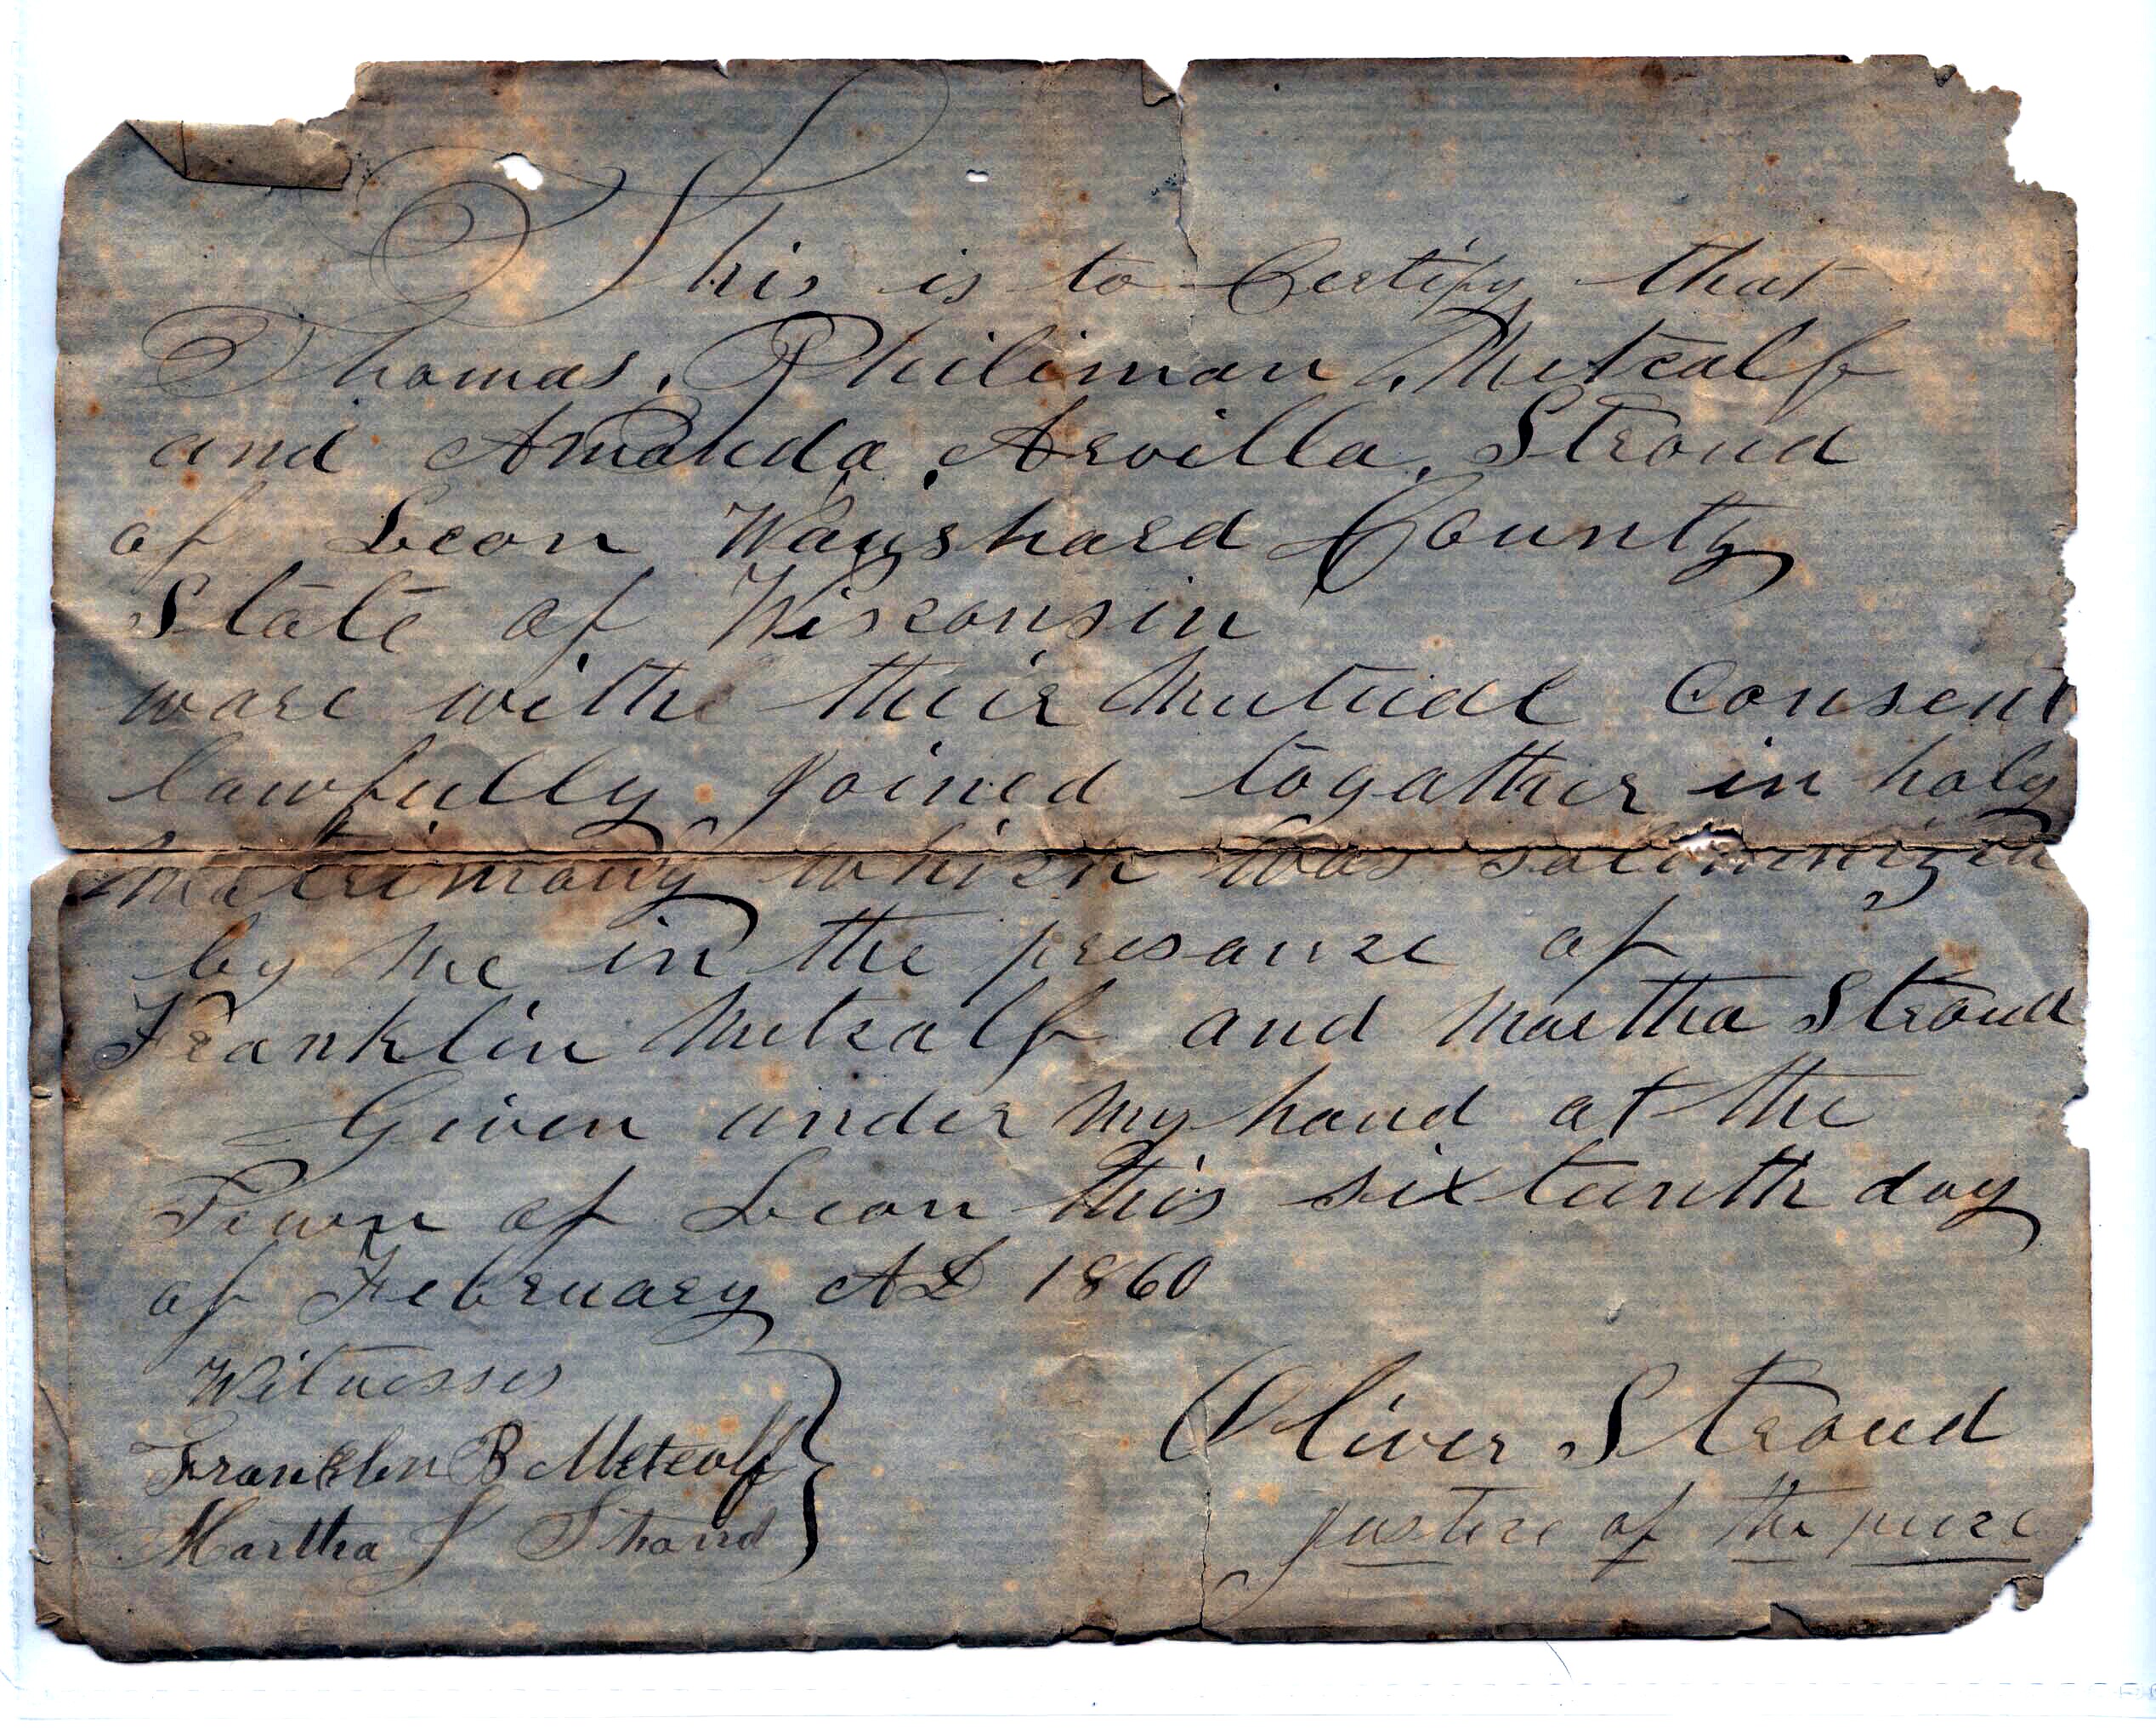 This is to Certify that
Thomas. Philiman. Metcalf
and Amanda. Arvilla. Stroud
of Leon Waushard County
State of Wisconsin
ware withe their Mutual Consent
lawfully joined togather in holy
Matrimony which was solemnized
by Me in the presance of
Franklin Metcalf and Martha Stroud
Given under My hand at the
Town of Leon this sixteenth day
of February AD 1860
Witnesses
Franklin B Metcalf
Martha J Stroud
Oliver Stroud
justice of the peace